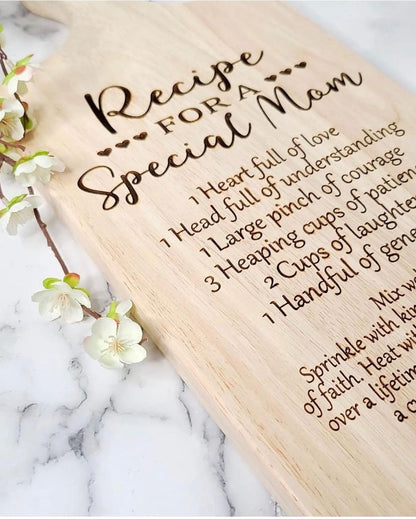 Recipe
FOR A
Special Mom
1 Heart full of love
1 Head full of understanding
1 Large pinch of courage
3 Heaping cups of patien
2 Cups of laughte
1 Handful of gene
Mix w
Sprinkle with ki
of faith. Heat wit
over a lifetim
a c